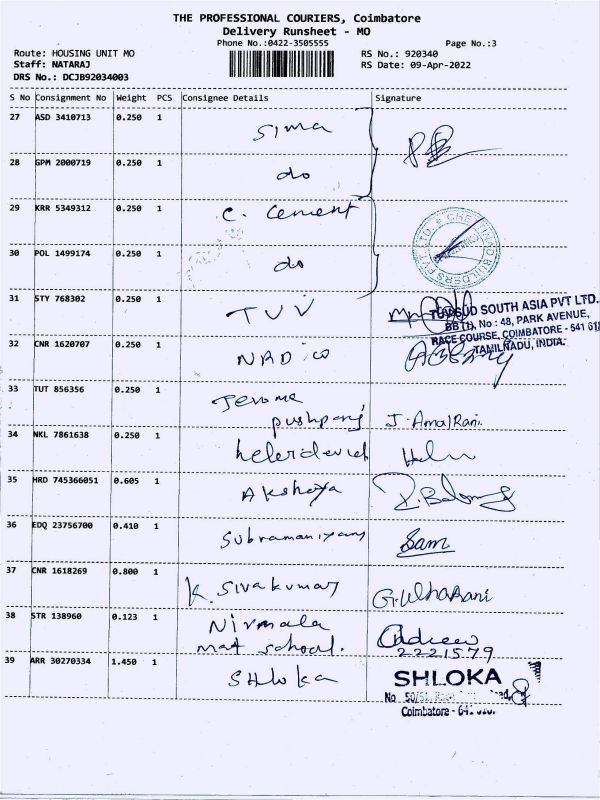 THE PROFESSIONAL COURIERS, Coimbatore
Delivery Runsheet - MO
Phone No.:0422-3505555
Page No.:3
Route: HOUSING UNIT MO
RS No.: 920340
Staff: NATARAJ
RS Date: 09-Apr-2022
DRS No.: DCJB92034003
S No Consignment No Weight PCS Consignee Details Signature
27 ASD 3410713 0.250 1 Sima
28 GPM 2000719 0.250 1 do
29 KRR 5349312 0.250 1 C. Cement
30 POL 1499174 0.250 1 do
31 STY 768302 0.250 1 TUV
TUV SUD SOUTH ASIA PVT LTD.
No : 48, PARK AVENUE,
RACE COURSE, COIMBATORE - 641 018
TAMILNADU, INDIA.
32 CNR 1620707 0.250 1
33 TUT 856356 0.250 1 Jerome
pushparaj J. AmalRani
34 NKL 7861638 0.250 1
35 HRD 745366051 0.605 1 Akshaya
36 EDQ 23756700 0.410 1 Subramaniyam Sam
37 CNR 1618269 0.800 1 K. Sivakumar
38 STR 138960 0.123 1 Nirmala
mat school. 2221579
39 ARR 30270334 1.450 1 SHloka SHLOKA
No 50/51,
Coimbatore -